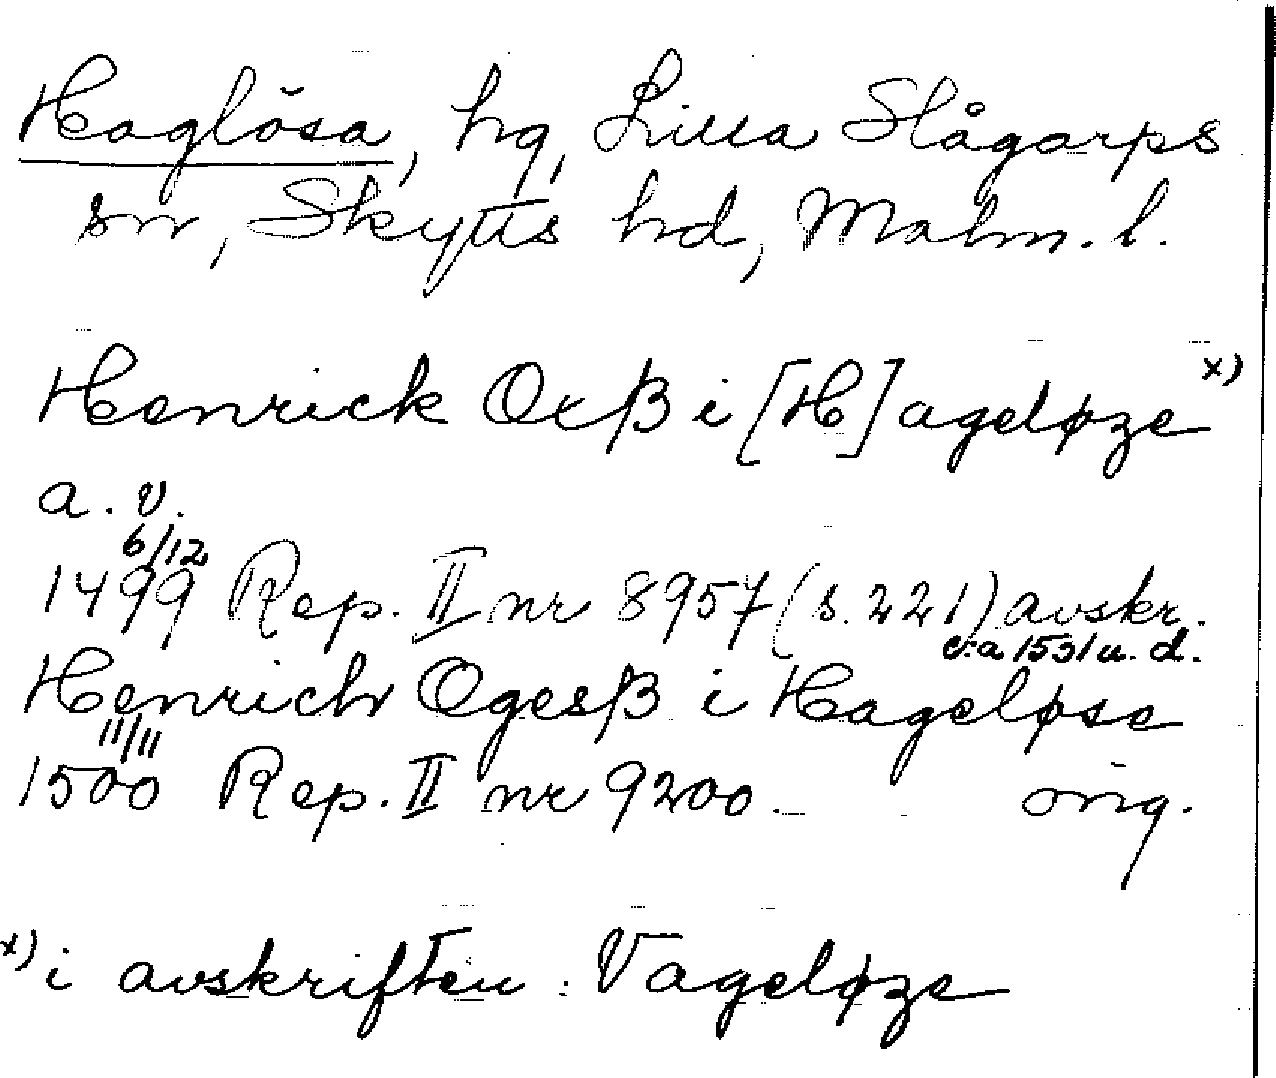 Haglösa, hg, Lilla Slågarps
sn, Skytts hd, Malm. l.
Henrick Oxß i [H]ageløze x)
a. v.
6/12
1499 Rep. II nr 8957 (s. 221) avskr.
c:a 1531 u. d.
Henrich Ogesß i Hageløse
11/11
1500 Rep. II nr 9200 orig.
x) i avskriften: Vageløze